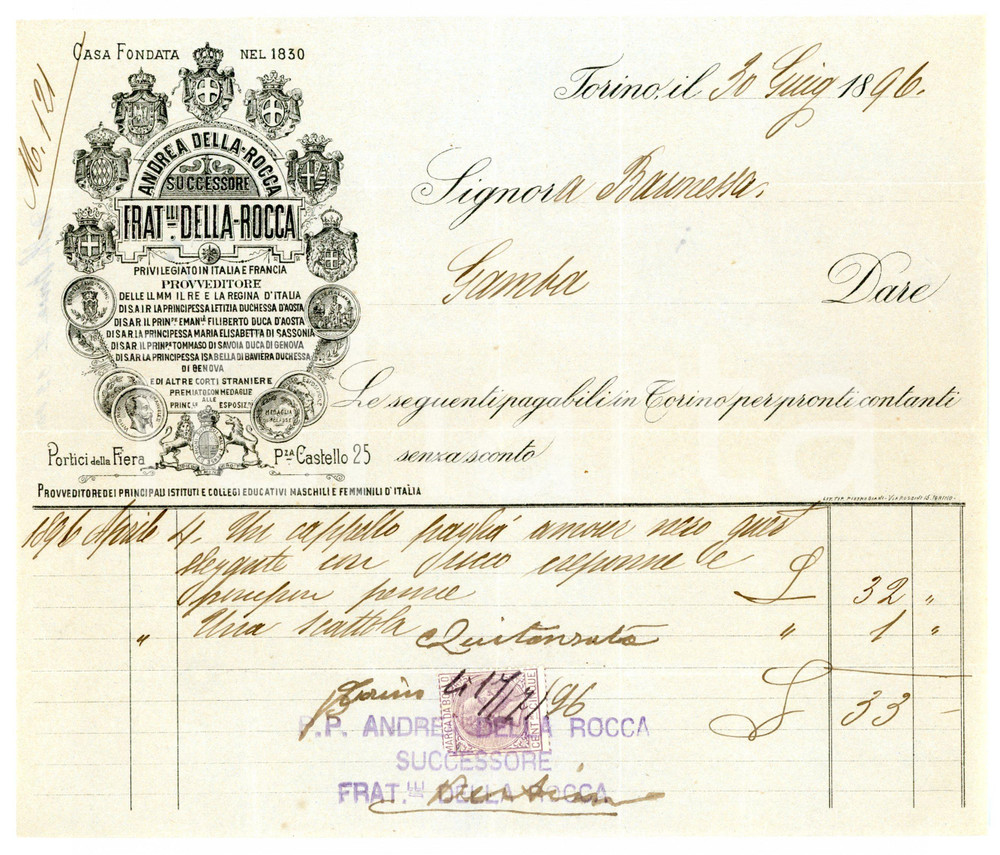 CASA FONDATA NEL 1830
M. 121
ANDREA DELLA-ROCCA
SUCCESSORE
FRAT.LLI DELLA-ROCCA
PRIVILEGIATO IN ITALIA E FRANCIA
PROVVEDITORE
DELLE LL MM IL RE E LA REGINA D'ITALIA
DI S.A.I R LA PRINCIPESSA LETIZIA DUCHESSA D'AOSTA
DI S.AR. IL PRIN.PE EMAN.LE FILIBERTO DUCA D'AOSTA
DI S.A R LA PRINCIPESSA MARIA ELISABETTA DI SASSONIA
DI S.AR IL PRIN.PE TOMMASO DI SAVOIA DUCA DI GENOVA
DI S.AR. LA PRINCIPESSA ISABELLA DI BAVIERA DUCHESSA
DI GENOVA
E DI ALTRE CORTI STRANIERE
PREMIATO CON MEDAGLIE
ALLE
PRINC.LI ESPOSIZ.NI
Portici della Fiera P.ZA Castello 25
PROVVEDITORE DEI PRINCIPALI ISTITUTI E COLLEGI EDUCATIVI MASCHILI E FEMMINILI D'ITALIA
Torino, il 30 Giug 1896.
Signora Baronessa
Gamba Dare
Le seguenti pagabili in Torino per pronti contanti
senza sconto
1896 Aprile 4. Un cappello paglia amour nero
elegante con
£ 32 "
" Una scattola " 1 "
Quitanzata
£ 33 –
Torino li 17/7/96
MARCA DA BOLLO
CENT. CINQUE
P.P. ANDREA DELLA ROCCA
SUCCESSORE
FRAT.LLI DELLA ROCCA